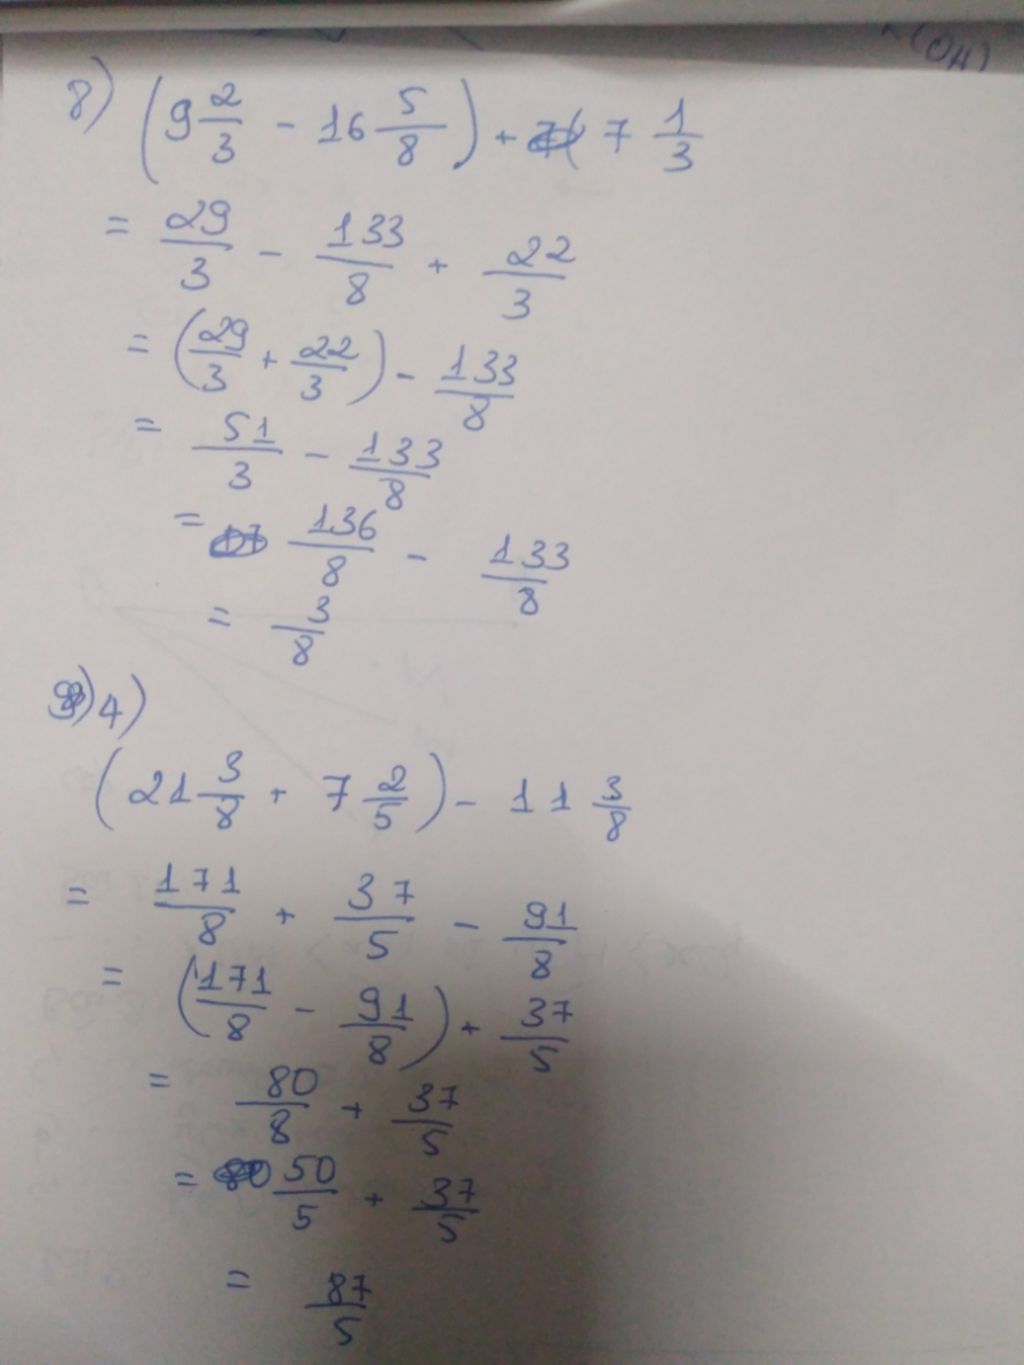 (OH)
8) (9 2/3 - 16 5/8) + 7 1/3
= 29/3 - 133/8 + 22/3
= (29/3 + 22/3) - 133/8
= 51/3 - 133/8
= 136/8 - 133/8
= 3/8
4)
(21 3/8 + 7 2/5) - 11 3/8
= 171/8 + 37/5 - 91/8
= (171/8 - 91/8) + 37/5
= 80/8 + 37/5
= 50/5 + 37/5
= 87/5